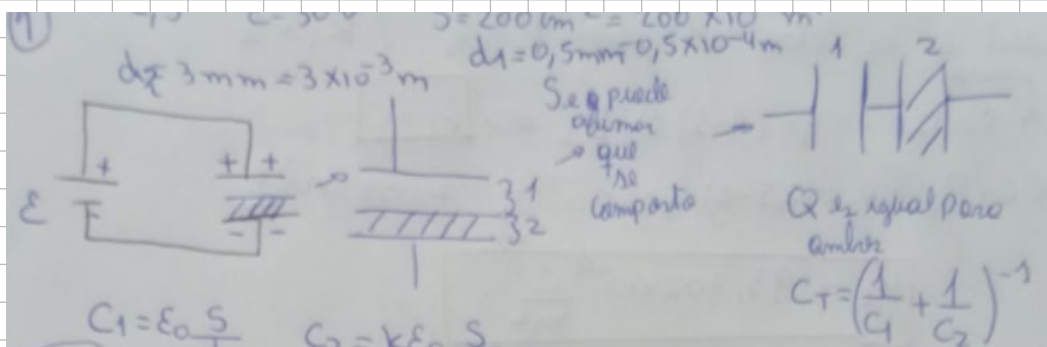 1
S=200cm² = 200×10 m²
d1=0,5mm=0,5×10⁻⁴m
d2= 3mm=3×10⁻³m
1 2
Se puede
asumir
que
se
comporta
+ + +
- -
ε
}1
}2
Q es igual para
ambos
C_T=(1/C1 + 1/C2)⁻¹
C1=ε0 S
C2=kε0 S